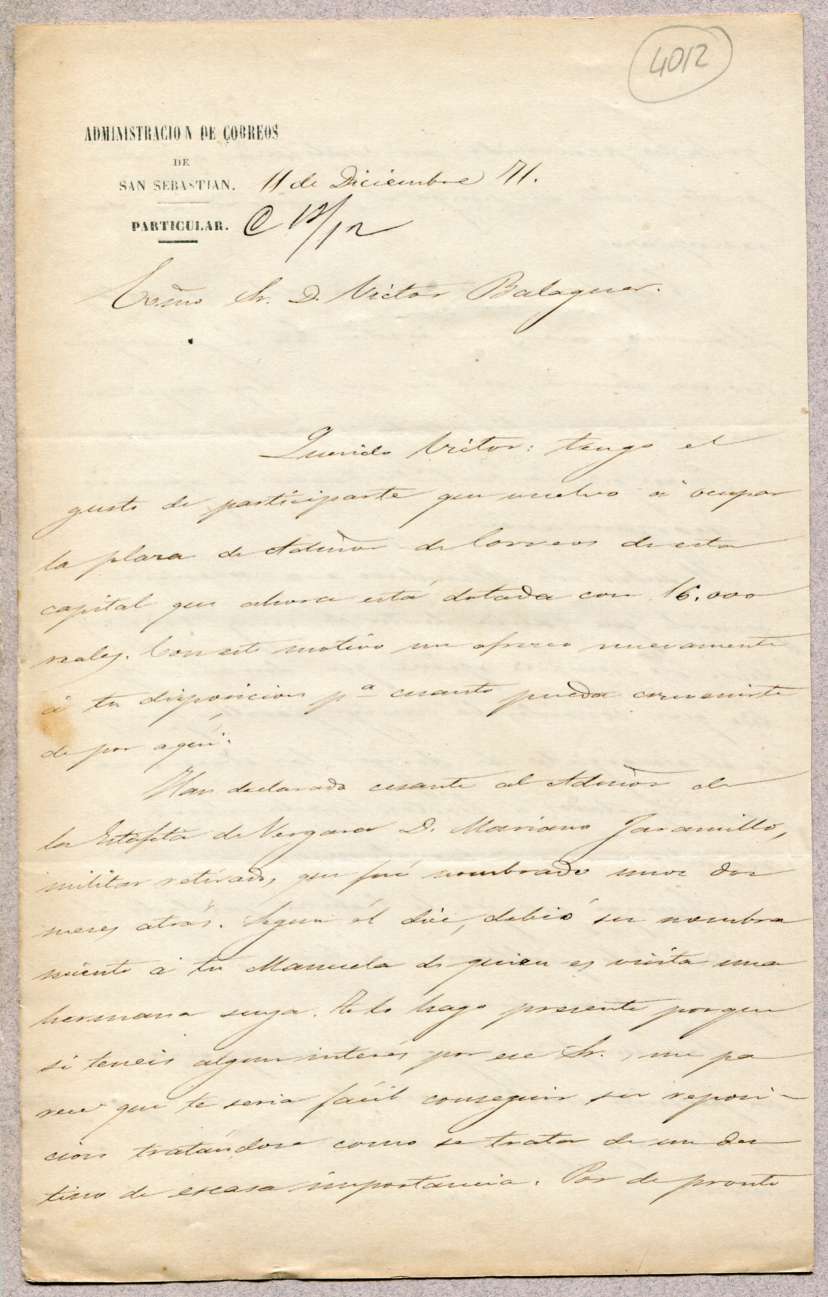 4012
ADMINISTRACION DE CORREOS
DE
SAN SEBASTIAN. 11 de Diciembre 71.
PARTICULAR. C 12/12
Excmo Sr. D. Victor Balaguer.
Querido Victor: tengo el
gusto de participarte que vuelvo á ocupar
la plaza de Admor de Correos de esta
capital que ahora está dotada con 16.000
reales. Con este motivo me ofrezco nuevamente
á tu disposicion pª cuanto pueda convenirte
de por aquí.
Han declarado cesante al Admor de
la Estafeta de Vergara D. Mariano Jaramillo,
militar retirado, que fué nombrado unos dos
meses atrás. Segun él dice, debió su nombra
miento á tu Manuela de quien es visita una
hermana suya. Te lo hago presente porque
si teneis algun interés por ese Sr., me pa
rece que te seria fácil conseguir su reposi-
cion tratándose como se trata de un des
tino de escasa importancia. Por de pronto